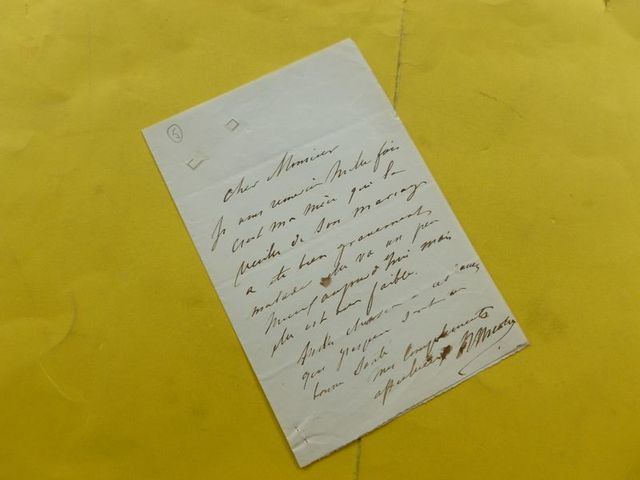 5
Cher Monsieur
Je vous remercie mille fois
C'est ma mère qui la
veille de son mariage
a été bien gravement
malade elle va un peu
mieux aujourd'hui mais
elle est bien faible.
Mille choses à
que j'espère sont en
bonne santé
mes compliments
affectueux